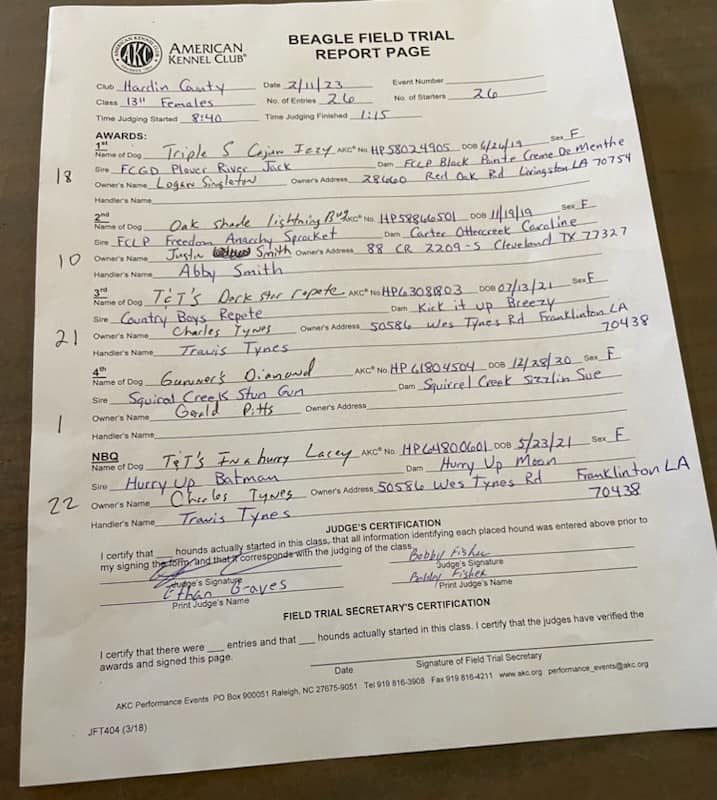 AMERICAN KENNEL CLUB AKC
AMERICAN
KENNEL CLUB®
BEAGLE FIELD TRIAL
REPORT PAGE
Club Hardin County Date 2/11/23 Event Number
Class 13" Females No. of Entries 26 No. of Starters 26
Time Judging Started 8:40 Time Judging Finished 1:15
AWARDS:
1st
Name of Dog Triple S Cajun Izzy AKC® No. HP58024905 DOB 6/26/19 Sex F
18 Sire FCGD Plover River Jack Dam FCLP Black Pointe Creme De Menthe
Owner's Name Logan Singleton Owner's Address 28660 Red Oak Rd Livingston LA 70754
Handler's Name
2nd
Name of Dog Oak Shade lightning Bug AKC® No. HP58866501 DOB 11/19/19 Sex F
Sire FCLP Freedom Anarchy Sprocket Dam Carter Ottercreek Caroline
10 Owner's Name Justin Smith Owner's Address 88 CR 2209-S Cleveland TX 77327
Handler's Name Abby Smith
3rd
Name of Dog T&T's Dork star repete AKC® No. HP6308803 DOB 07/13/21 Sex F
Sire Country Boys Repete Dam Kick it up Breezy
21 Owner's Name Charles Tynes Owner's Address 50586 Wes Tynes Rd Franklinton LA
70438
Handler's Name Travis Tynes
4th
Name of Dog Gunner's Diamond AKC® No. HP61804504 DOB 12/28/20 Sex F
Sire Squirel Creek Stun Gun Dam Squirrel Creek Sizzlin Sue
1 Owner's Name Gerald Pitts Owner's Address
Handler's Name
NBQ
Name of Dog T&T's In a hurry Lacey AKC® No. HP64800601 DOB 5/23/21 Sex F
Sire Hurry Up Batman Dam Hurry Up Moon
22 Owner's Name Charles Tynes Owner's Address 50586 Wes Tynes Rd Franklinton LA
70438
Handler's Name Travis Tynes
JUDGE'S CERTIFICATION
I certify that ___ hounds actually started in this class, that all information identifying each placed hound was entered above prior to
my signing the form, and that it corresponds with the judging of the class.
Bobby Fisher
Judge's Signature Judge's Signature
Ethan Graves Bobby Fisher
Print Judge's Name Print Judge's Name
FIELD TRIAL SECRETARY'S CERTIFICATION
I certify that there were ___ entries and that ___ hounds actually started in this class. I certify that the judges have verified the
awards and signed this page.
Date Signature of Field Trial Secretary
AKC Performance Events PO Box 900051 Raleigh, NC 27675-9051 Tel 919 816-3908 Fax 919 816-4211 www.akc.org performance_events@akc.org
JFT404 (3/18)